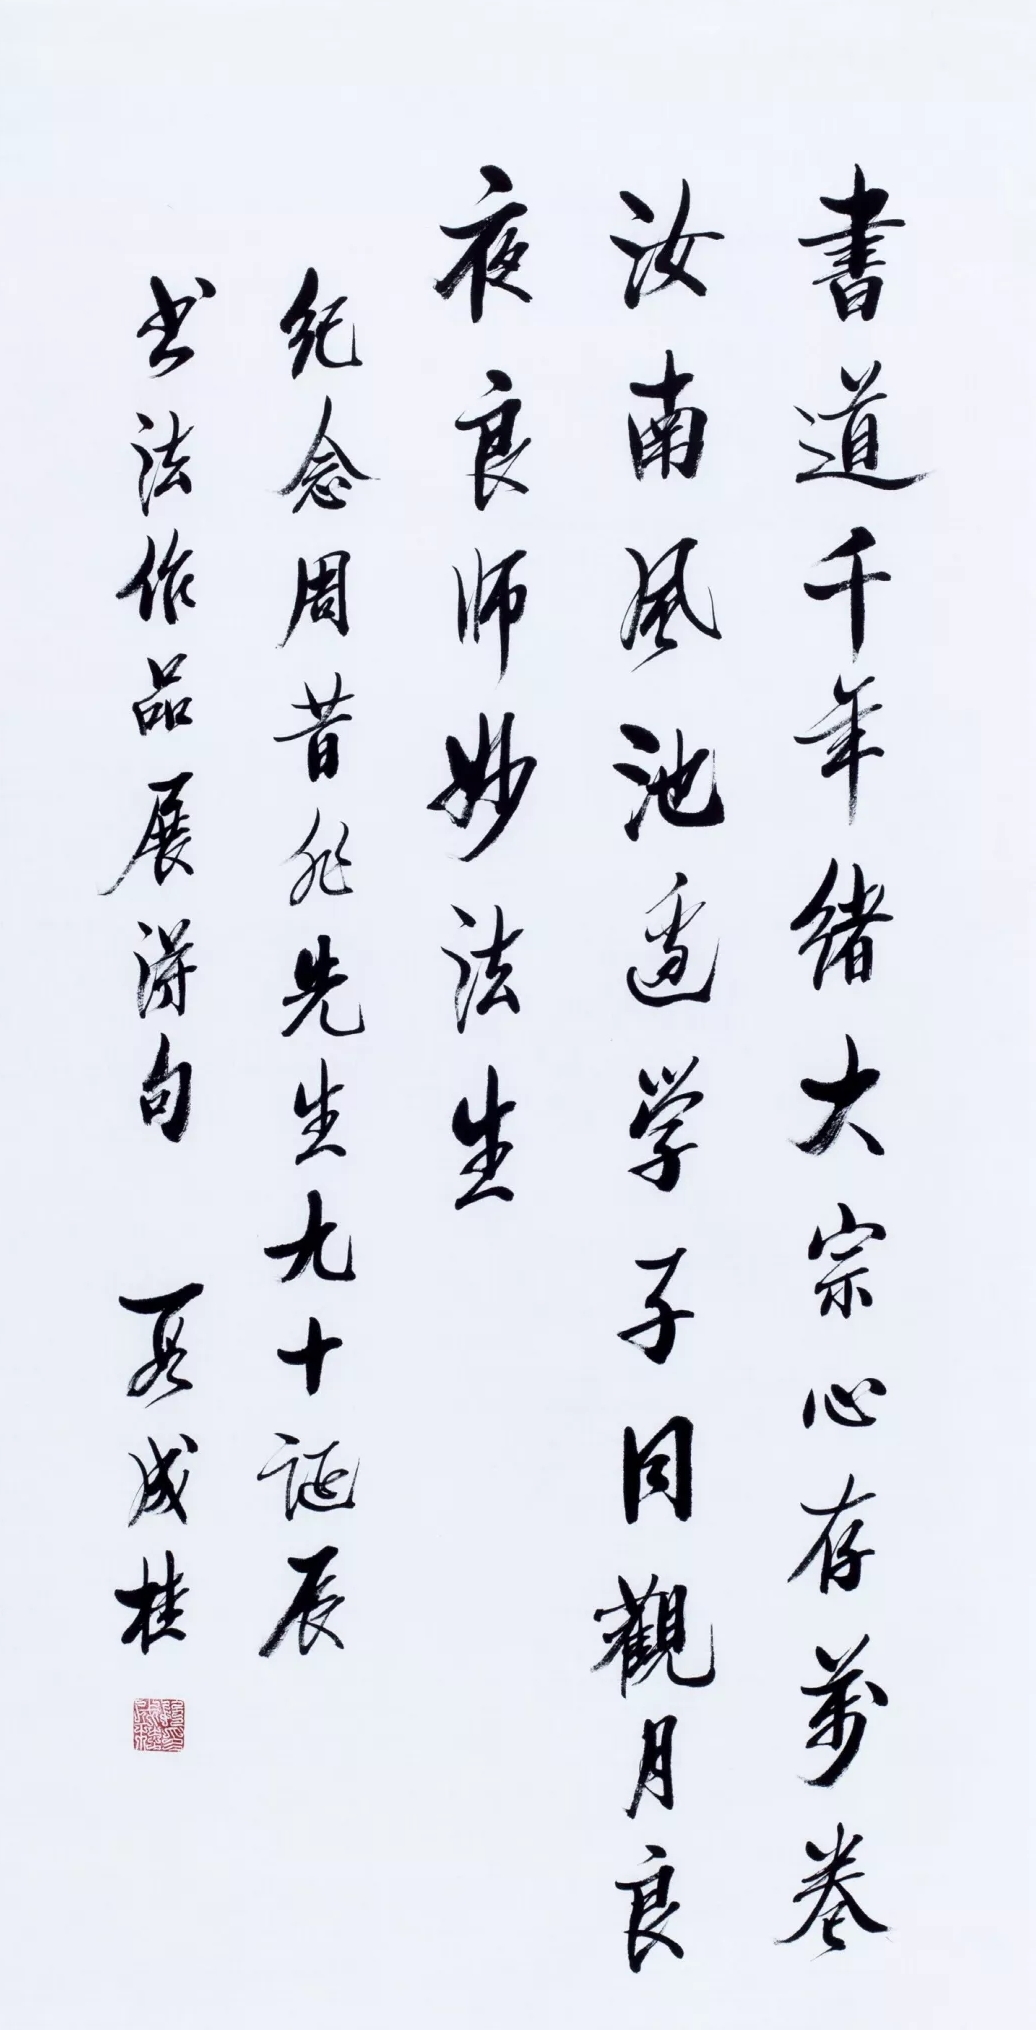 書道千年绪大宗心存萬卷
汝南风池邊学子同觀月良
夜良师妙法生
纪念周昔非先生九十诞辰
书法作品展得句 夏成桂